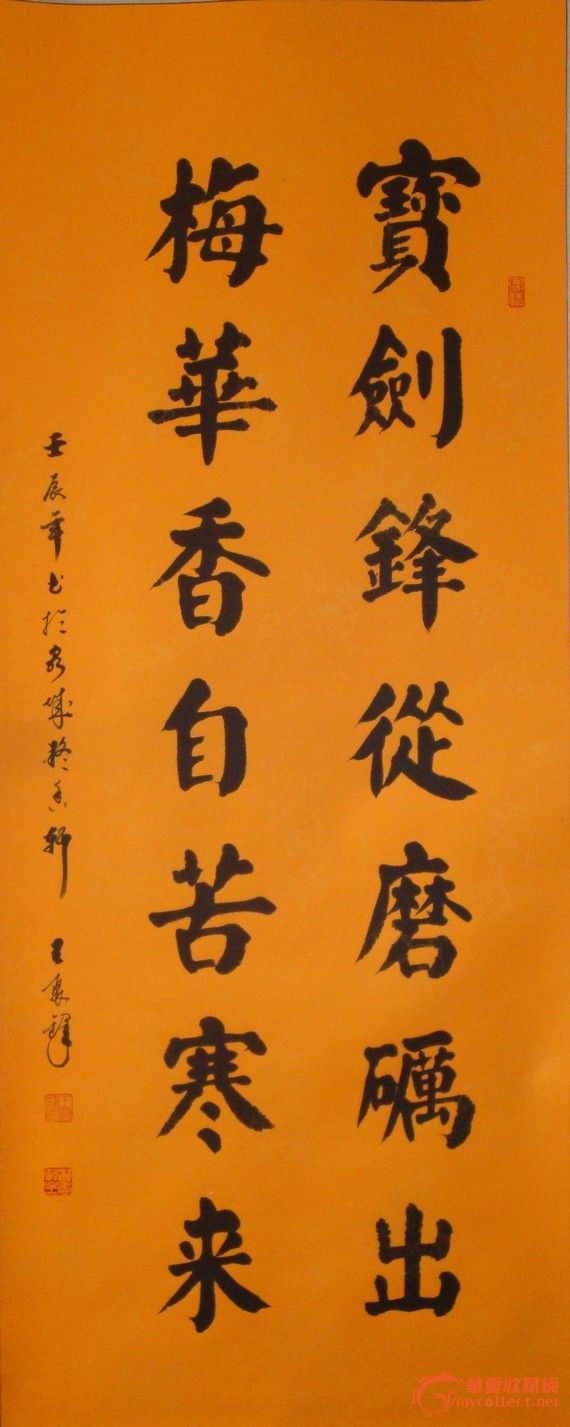 寶劍鋒從磨礪出
梅華香自苦寒来
壬辰年书於泉城
軒
華夏收藏網
mycollect.net